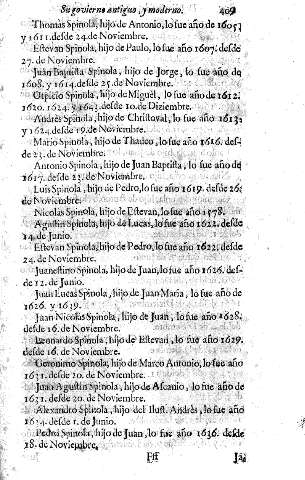 Su govierno antiguo, y moderno. 409
Thomas Spinola, hijo de Antonio, lo fue año de 1605.
y 1611. desde 24. de Noviembre.
Estevan Spinola, hijo de Paulo, lo fue año 1607. desde
27. de Noviembre.
Juan Baptista Spinola, hijo de Jorge, lo fue año de
1608. y 1614. desde 25. de Noviembre.
Spinola, hijo de Miguel, lo fue año de 1612.
1620. 1624. y 1643. desde 10. de Diziembre.
Andrès Spinola, hijo de Christoval, lo fue año de 1613.
y 1624. desde 19. de Noviembre.
Mario Spinola, hijo de Thadeo, lo fue año 1616. des-
de 23. de Noviembre.
Antonio Spinola, hijo de Juan Baptista, lo fue año de
1617. desde 22. de Noviembre.
Luis Spinola, hijo de Pedro, lo fue año 1619. desde 26.
de Noviembre.
Nicolas Spinola, hijo de Estevan, lo fue año 1578.
Agustin Spinola, hijo de Lucas, lo fue año 1622. desde
14. de Junio.
Estevan Spinola, hijo de Pedro, lo fue año 1622. desde
24. de Noviembre.
Juanestino Spinola, hijo de Juan, lo fue año 1626. des-
de 12. de Junio.
Juan Lucas Spinola, hijo de Juan Maria, lo fue año de
1626. y 1639.
Juan Nicolas Spinola, hijo de Juan, lo fue año 1628.
desde 16. de Noviembre.
Leonardo Spinola, hijo de Estevan, lo fue año 1629.
desde 16. de Noviembre.
Geronimo Spinola, hijo de Marco Antonio, lo fue año
1631. desde 20. de Noviembre.
Juan Agustin Spinola, hijo de Ascanio, lo fue año de
1631. desde 20. de Noviembre.
Alexandro Spinola, hijo del Ilust. Andrès, lo fue año
1634. desde 1. de Junio.
Pedro Spinola, hijo de Juan, lo fue año 1636. desde
18. de Noviembre.
Fff Ja-